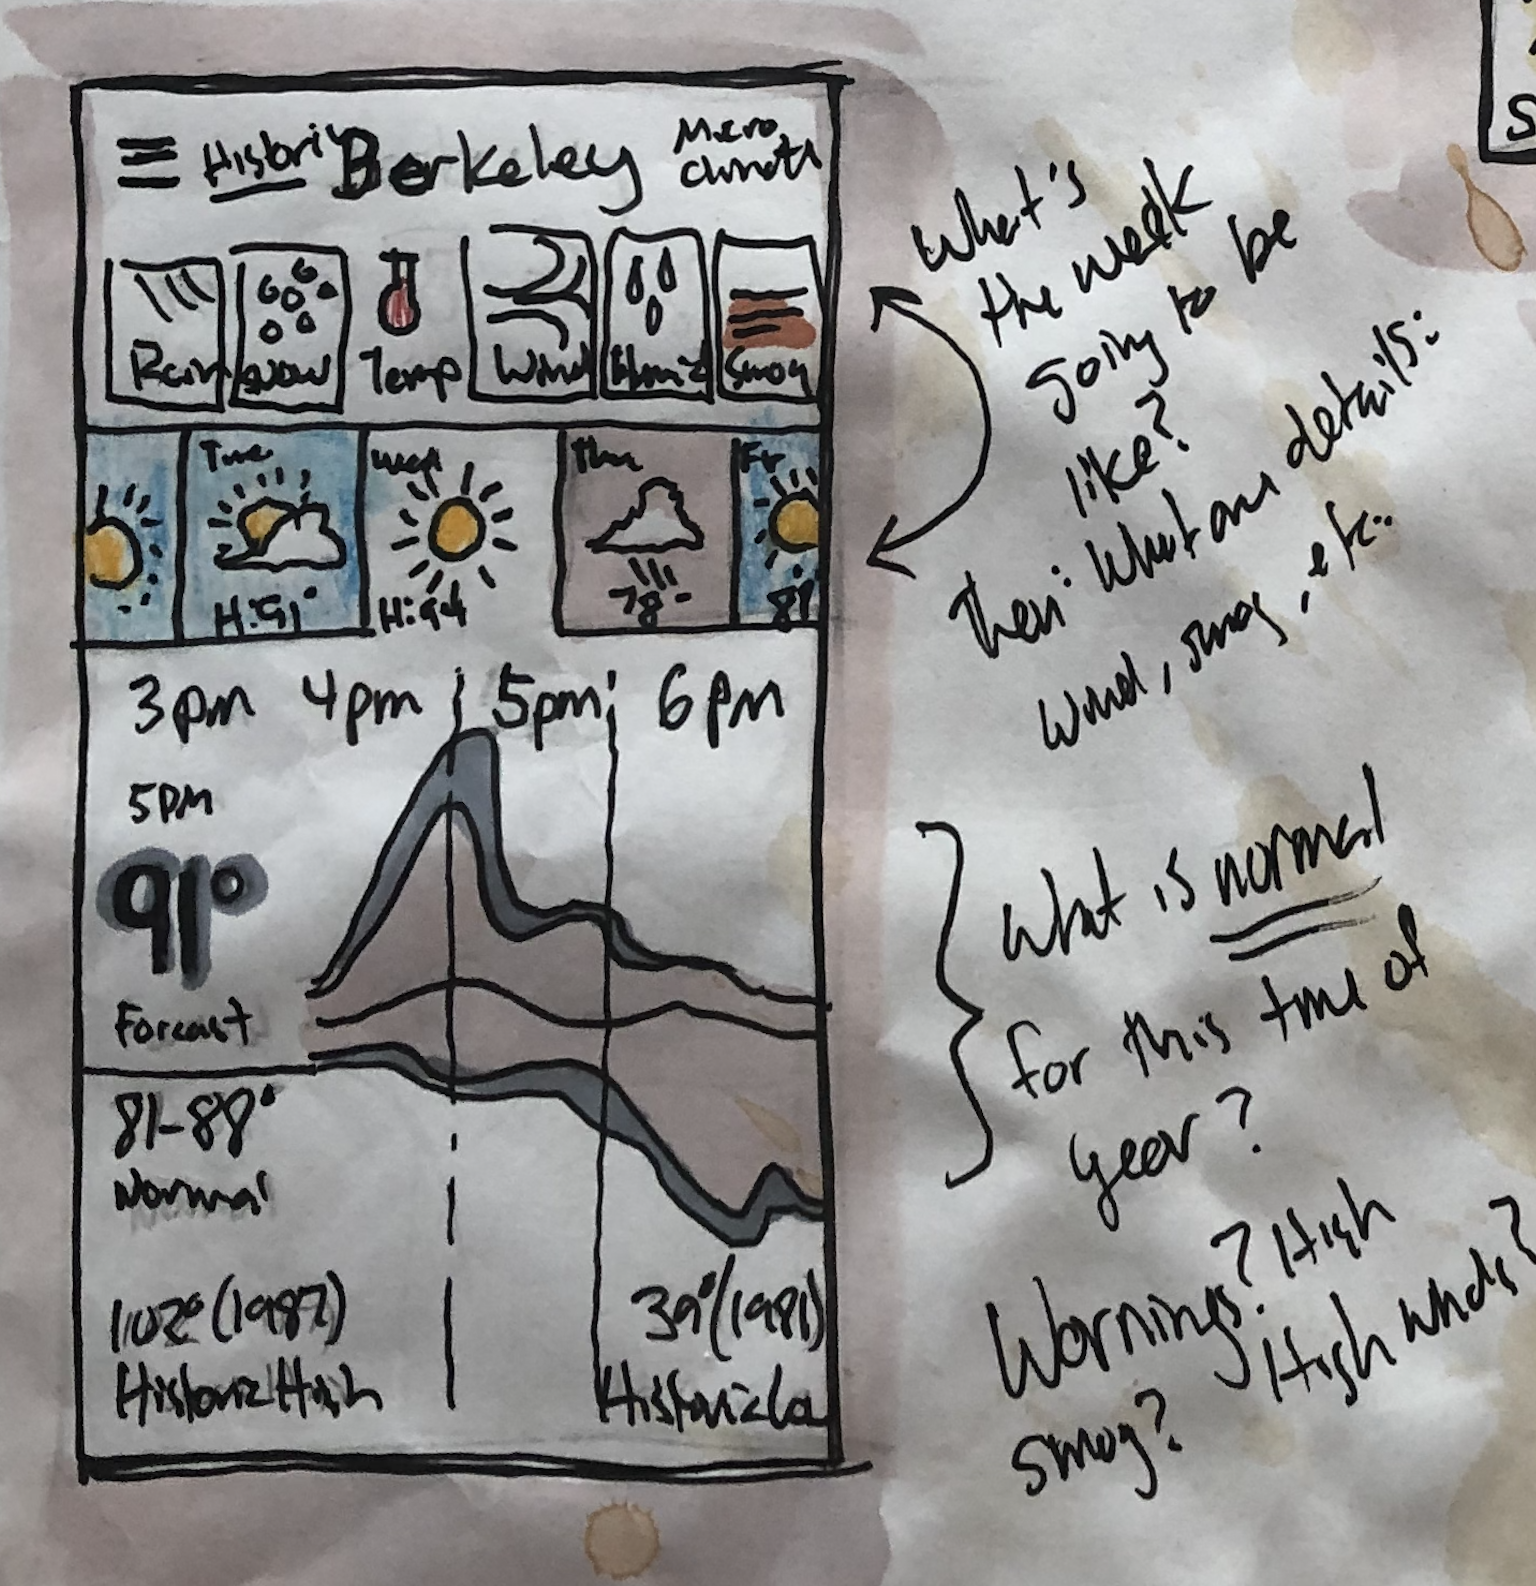 Histori Berkeley Micro
Climate
Rain Snow Temp Wind Humid Smog
Tue Wed Thu Fr
H:91° H:94 78- 81
3pm 4pm 5pm 6pm
5PM
91°
Forcast
81-88°
Normal
102° (1987) 39° (1981)
Historic High Historic Lo
What's
the week
going to be
like?
Then: What are details:
Wind, smog, etc..
What is normal
for this time of
year?
Warnings? High
smog? High winds?
S